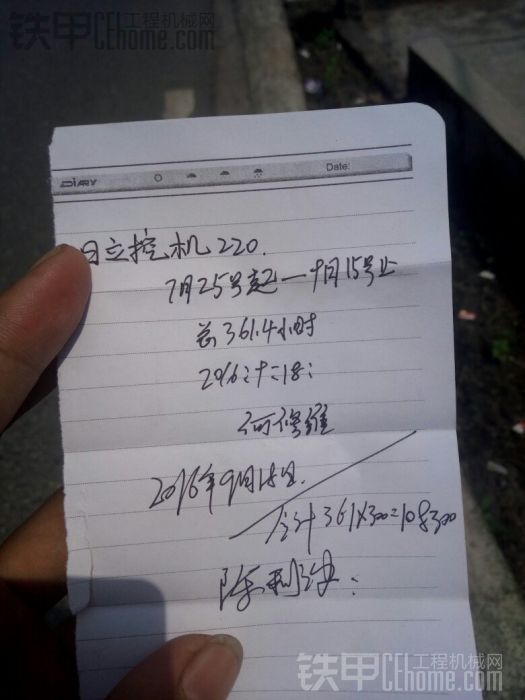 铁甲 CEhome.com 工程机械网
DIARY Date:
日立挖机220.
7月25号起—9月15号止
总361.4小时
2016年9月18日.
合计361X300=108300
铁甲 CEhome.com 工程机械网